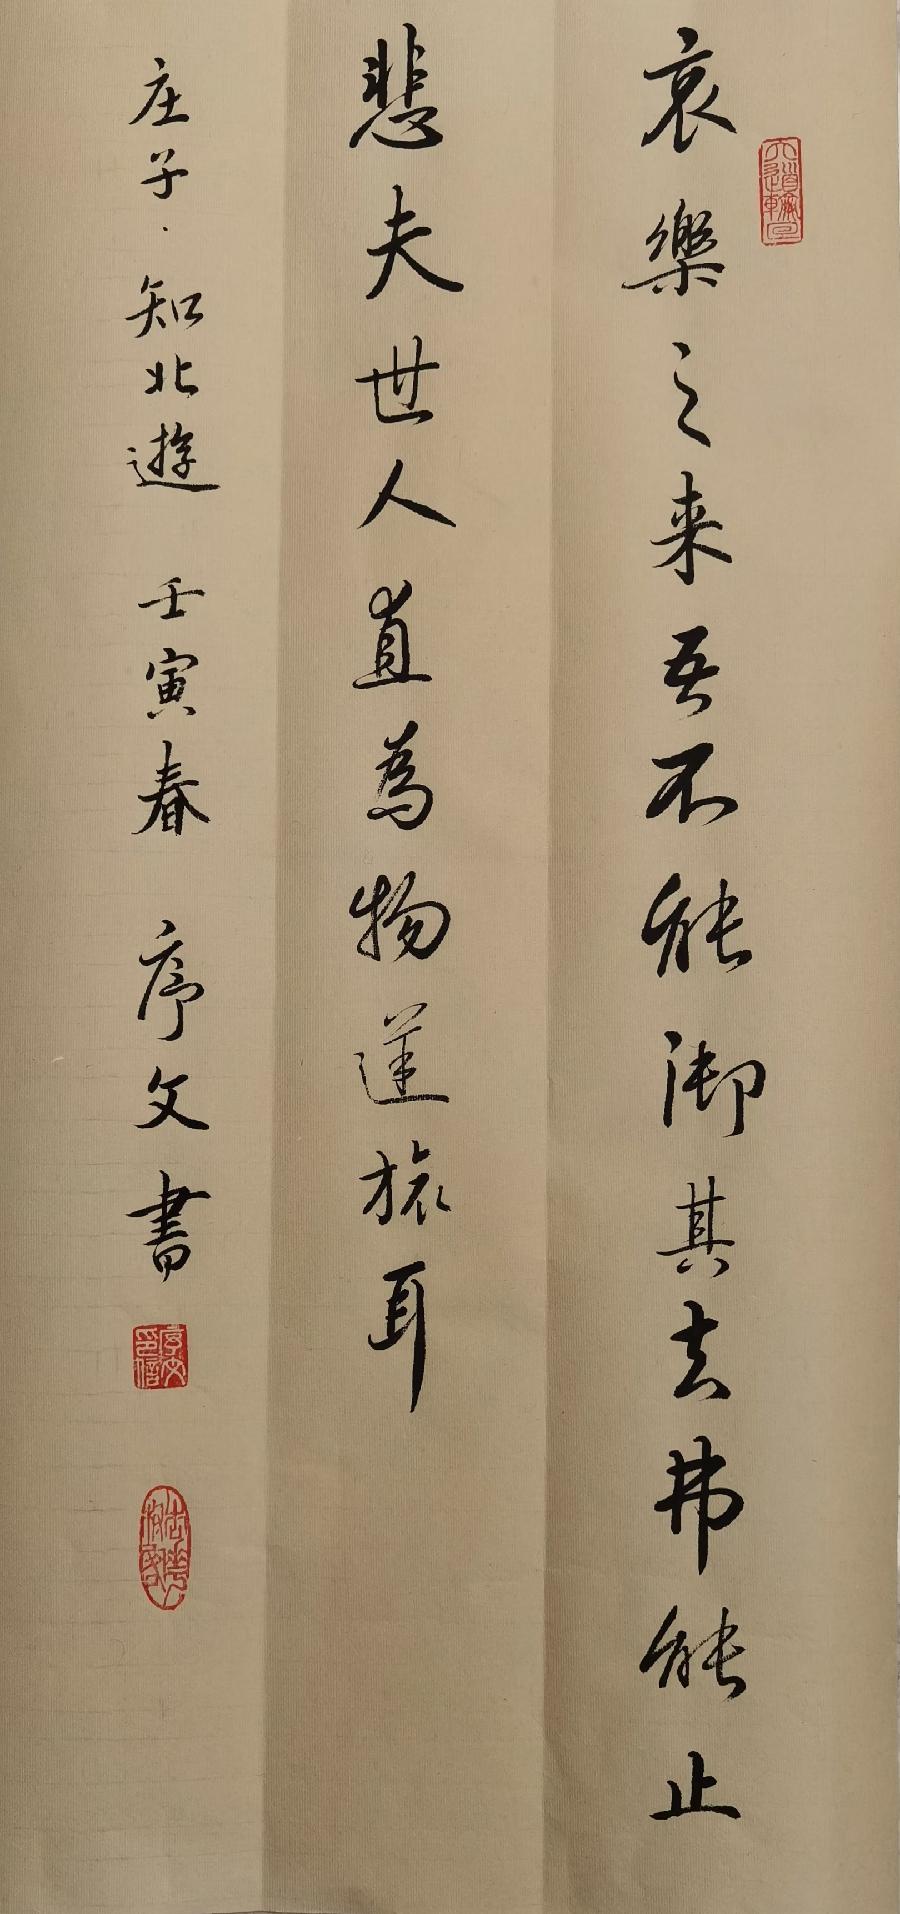 哀樂之来吾不能御其去弗能止
六道輪回
悲夫世人直為物逆旅耳
庄子·知北遊 壬寅春 序文書
序文印信